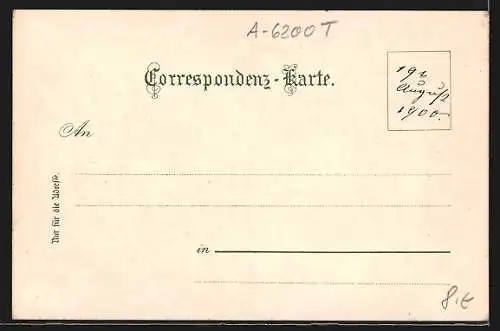 A-6200T
Correspondenz-Karte.
19t
August
1900.
An
Nur für die Adresse.
in
8,€